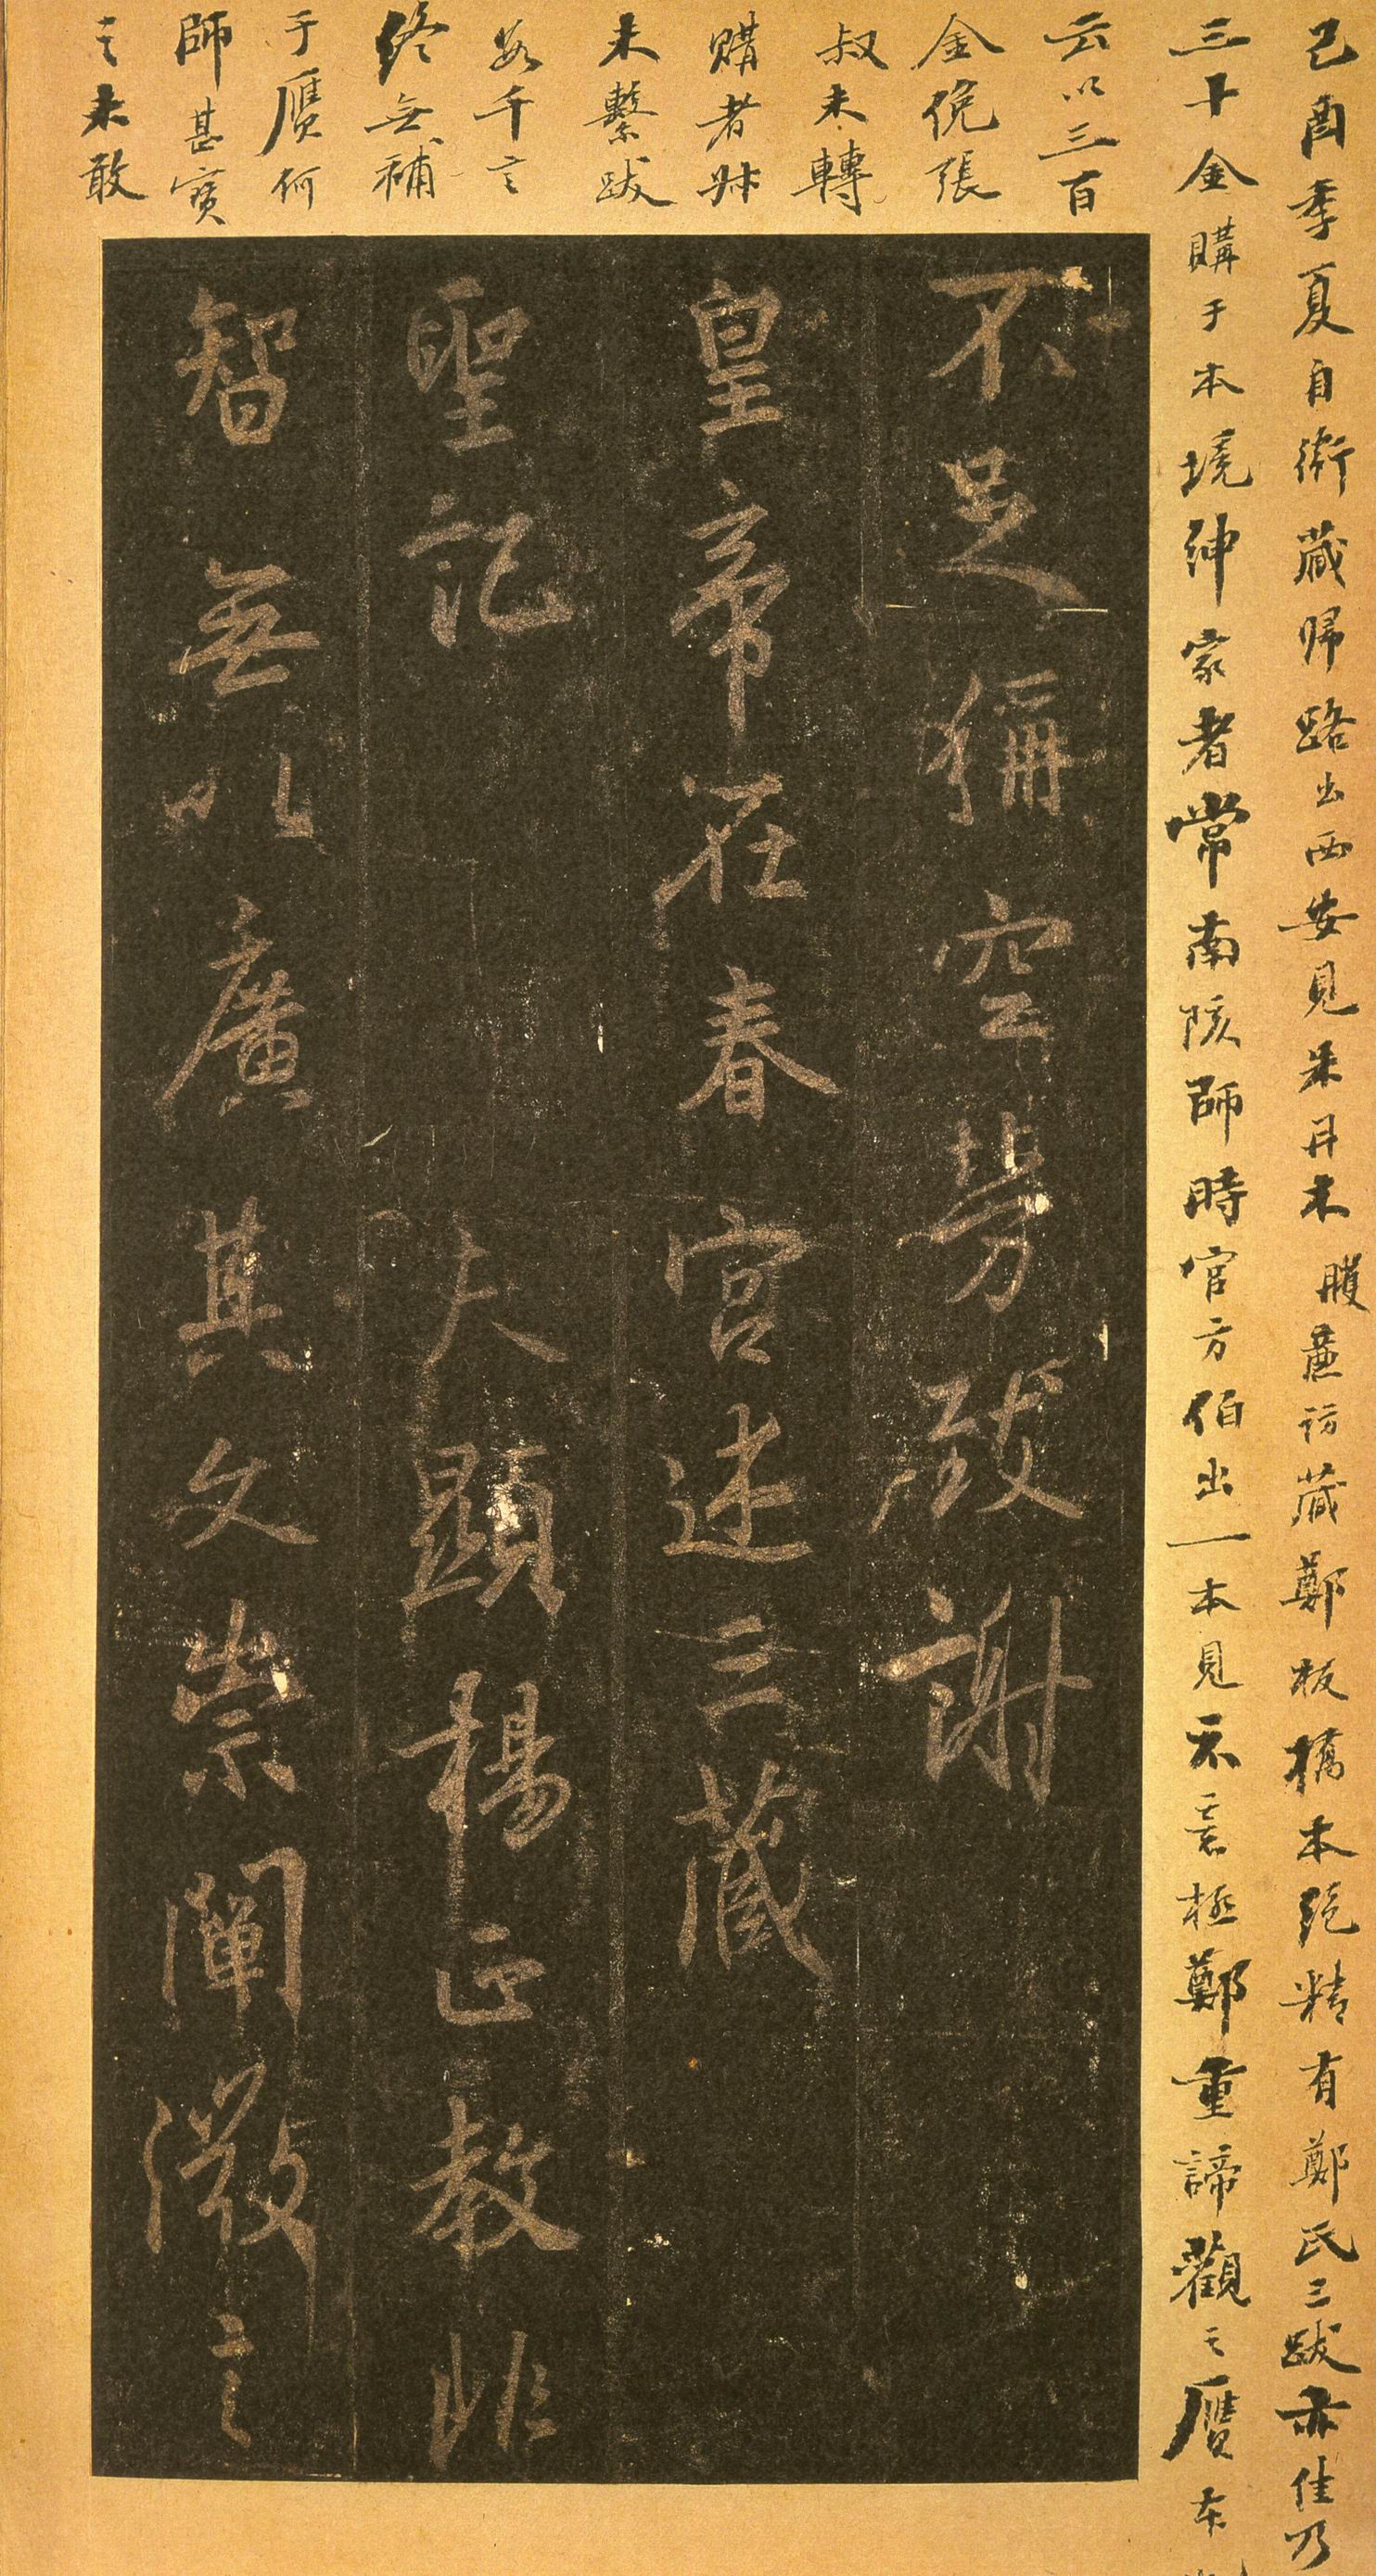 己酉季夏自衛藏歸路出西安見朱丹木廉訪藏鄭板橋本絕精有鄭氏三跋亦佳乃
三十金購于本境紳家者常南陔師時官方伯出一本見示意極鄭重諦觀之贋本
云以三百
金倪張
叔未轉
購者叔
未繫跋
數千言
終無補
于贋何
師甚寶
之未敢
不足稱空勞致謝
皇帝在春宮述三藏
聖記 夫顯揚正教非
智無以廣其文崇闡微言